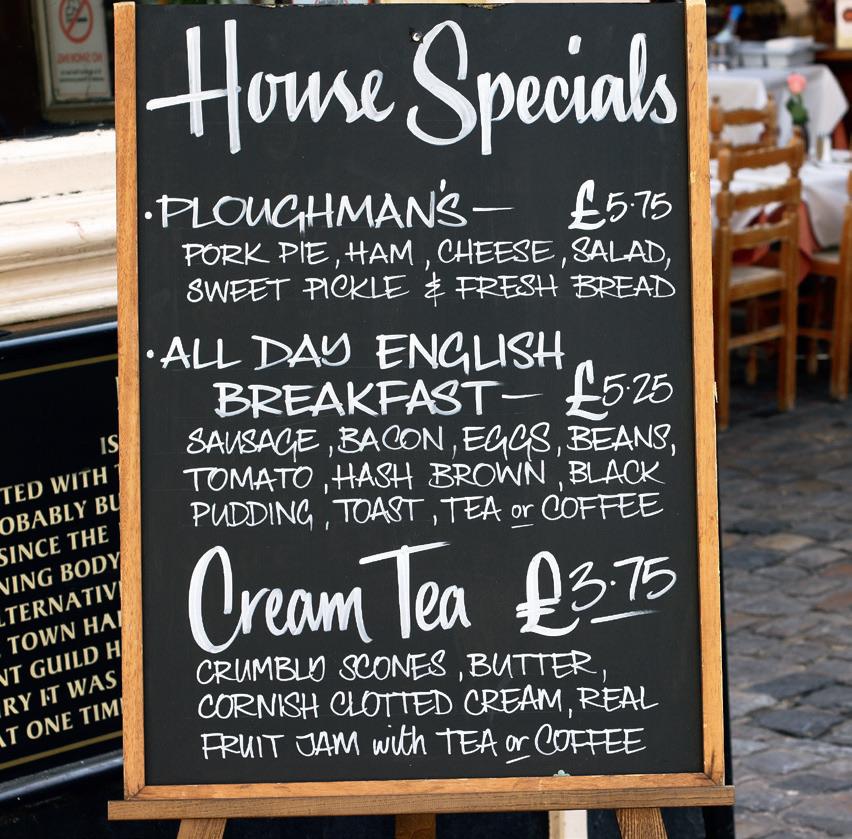 House Specials
·PLOUGHMAN'S— £5·75
PORK PIE, HAM, CHEESE, SALAD,
SWEET PICKLE & FRESH BREAD
·ALL DAY ENGLISH
BREAKFAST— £5·25
SAUSAGE, BACON, EGGS, BEANS,
TOMATO, HASH BROWN, BLACK
PUDDING, TOAST, TEA or COFFEE
Cream Tea £3·75
CRUMBLY SCONES, BUTTER,
CORNISH CLOTTED CREAM, REAL
FRUIT JAM with TEA or COFFEE
NO SMOKING
IS
TED WITH
OBABLY BU
SINCE THE
NING BODY
LTERNATIV
TOWN HA
NT GUILD H
RY IT WAS
AT ONE TIM